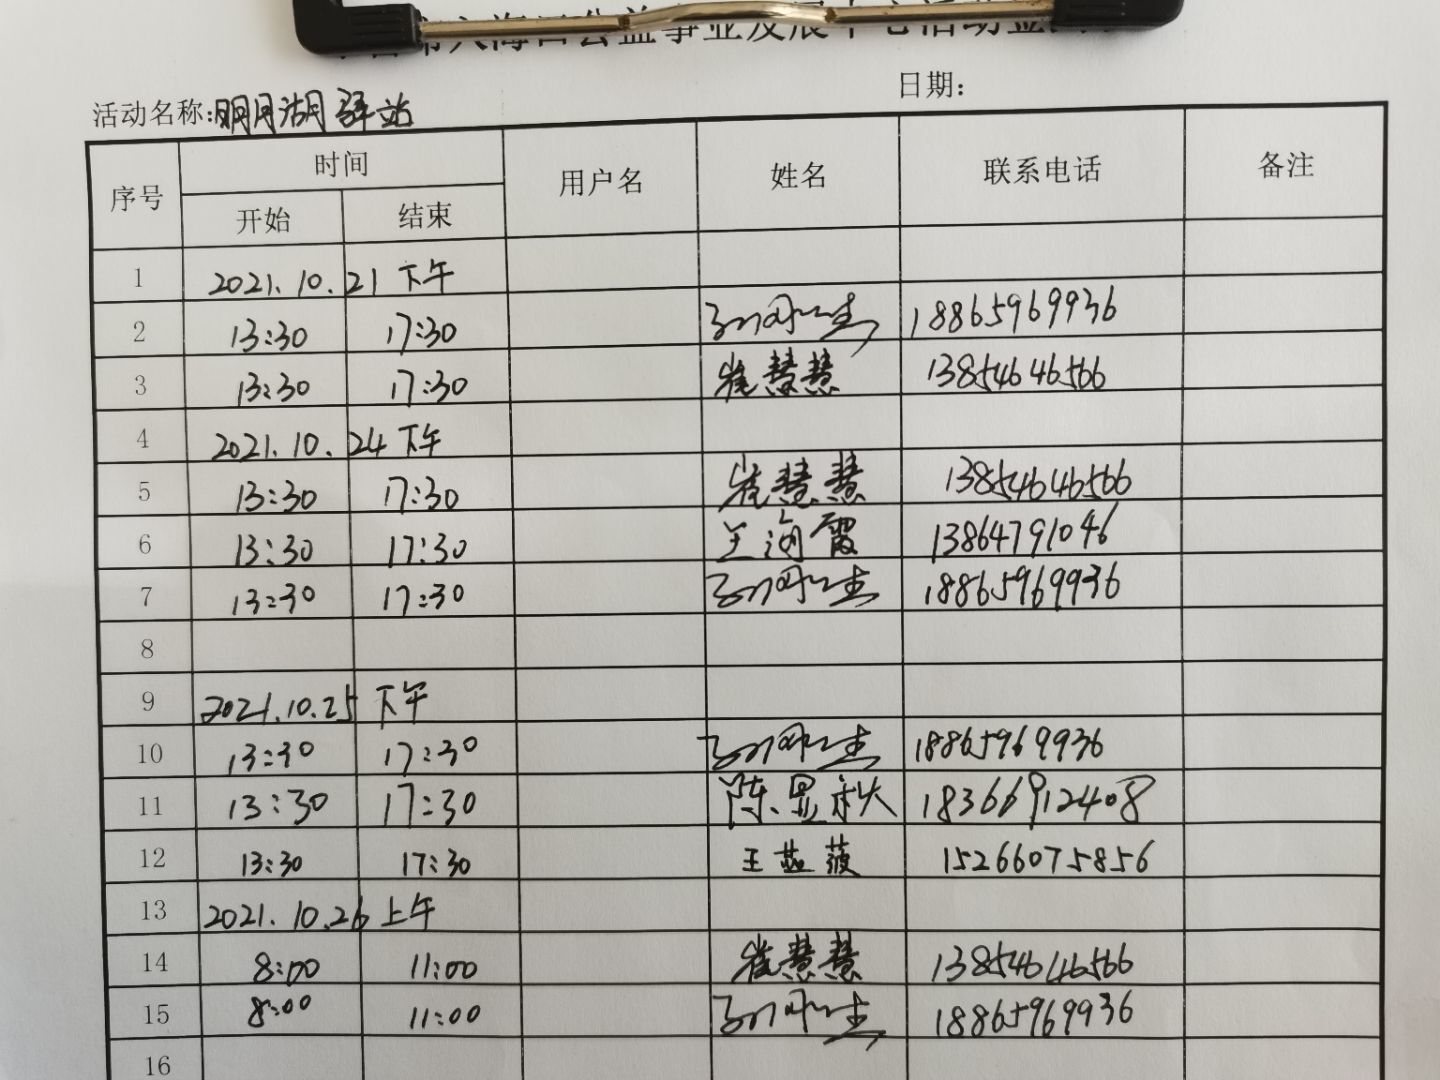 公益事业发展中心活动
日期:
活动名称:明月湖驿站
序号 时间 用户名 姓名 联系电话 备注
开始 结束
1 2021.10.21 下午
2 13:30 17:30 18865969936
3 13:30 17:30 崔慧慧 13854646566
4 2021.10.24 下午
5 13:30 17:30 崔慧慧 13854646566
6 13:30 17:30 王海霞 13864791046
7 13:30 17:30 18865969936
8
9 2021.10.25 下午
10 13:30 17:30 18865969936
11 13:30 17:30 陈显秋 18366912408
12 13:30 17:30 王蓝菠 15266075856
13 2021.10.26 上午
14 8:00 11:00 崔慧慧 13854646566
15 8:00 11:00 18865969936
16